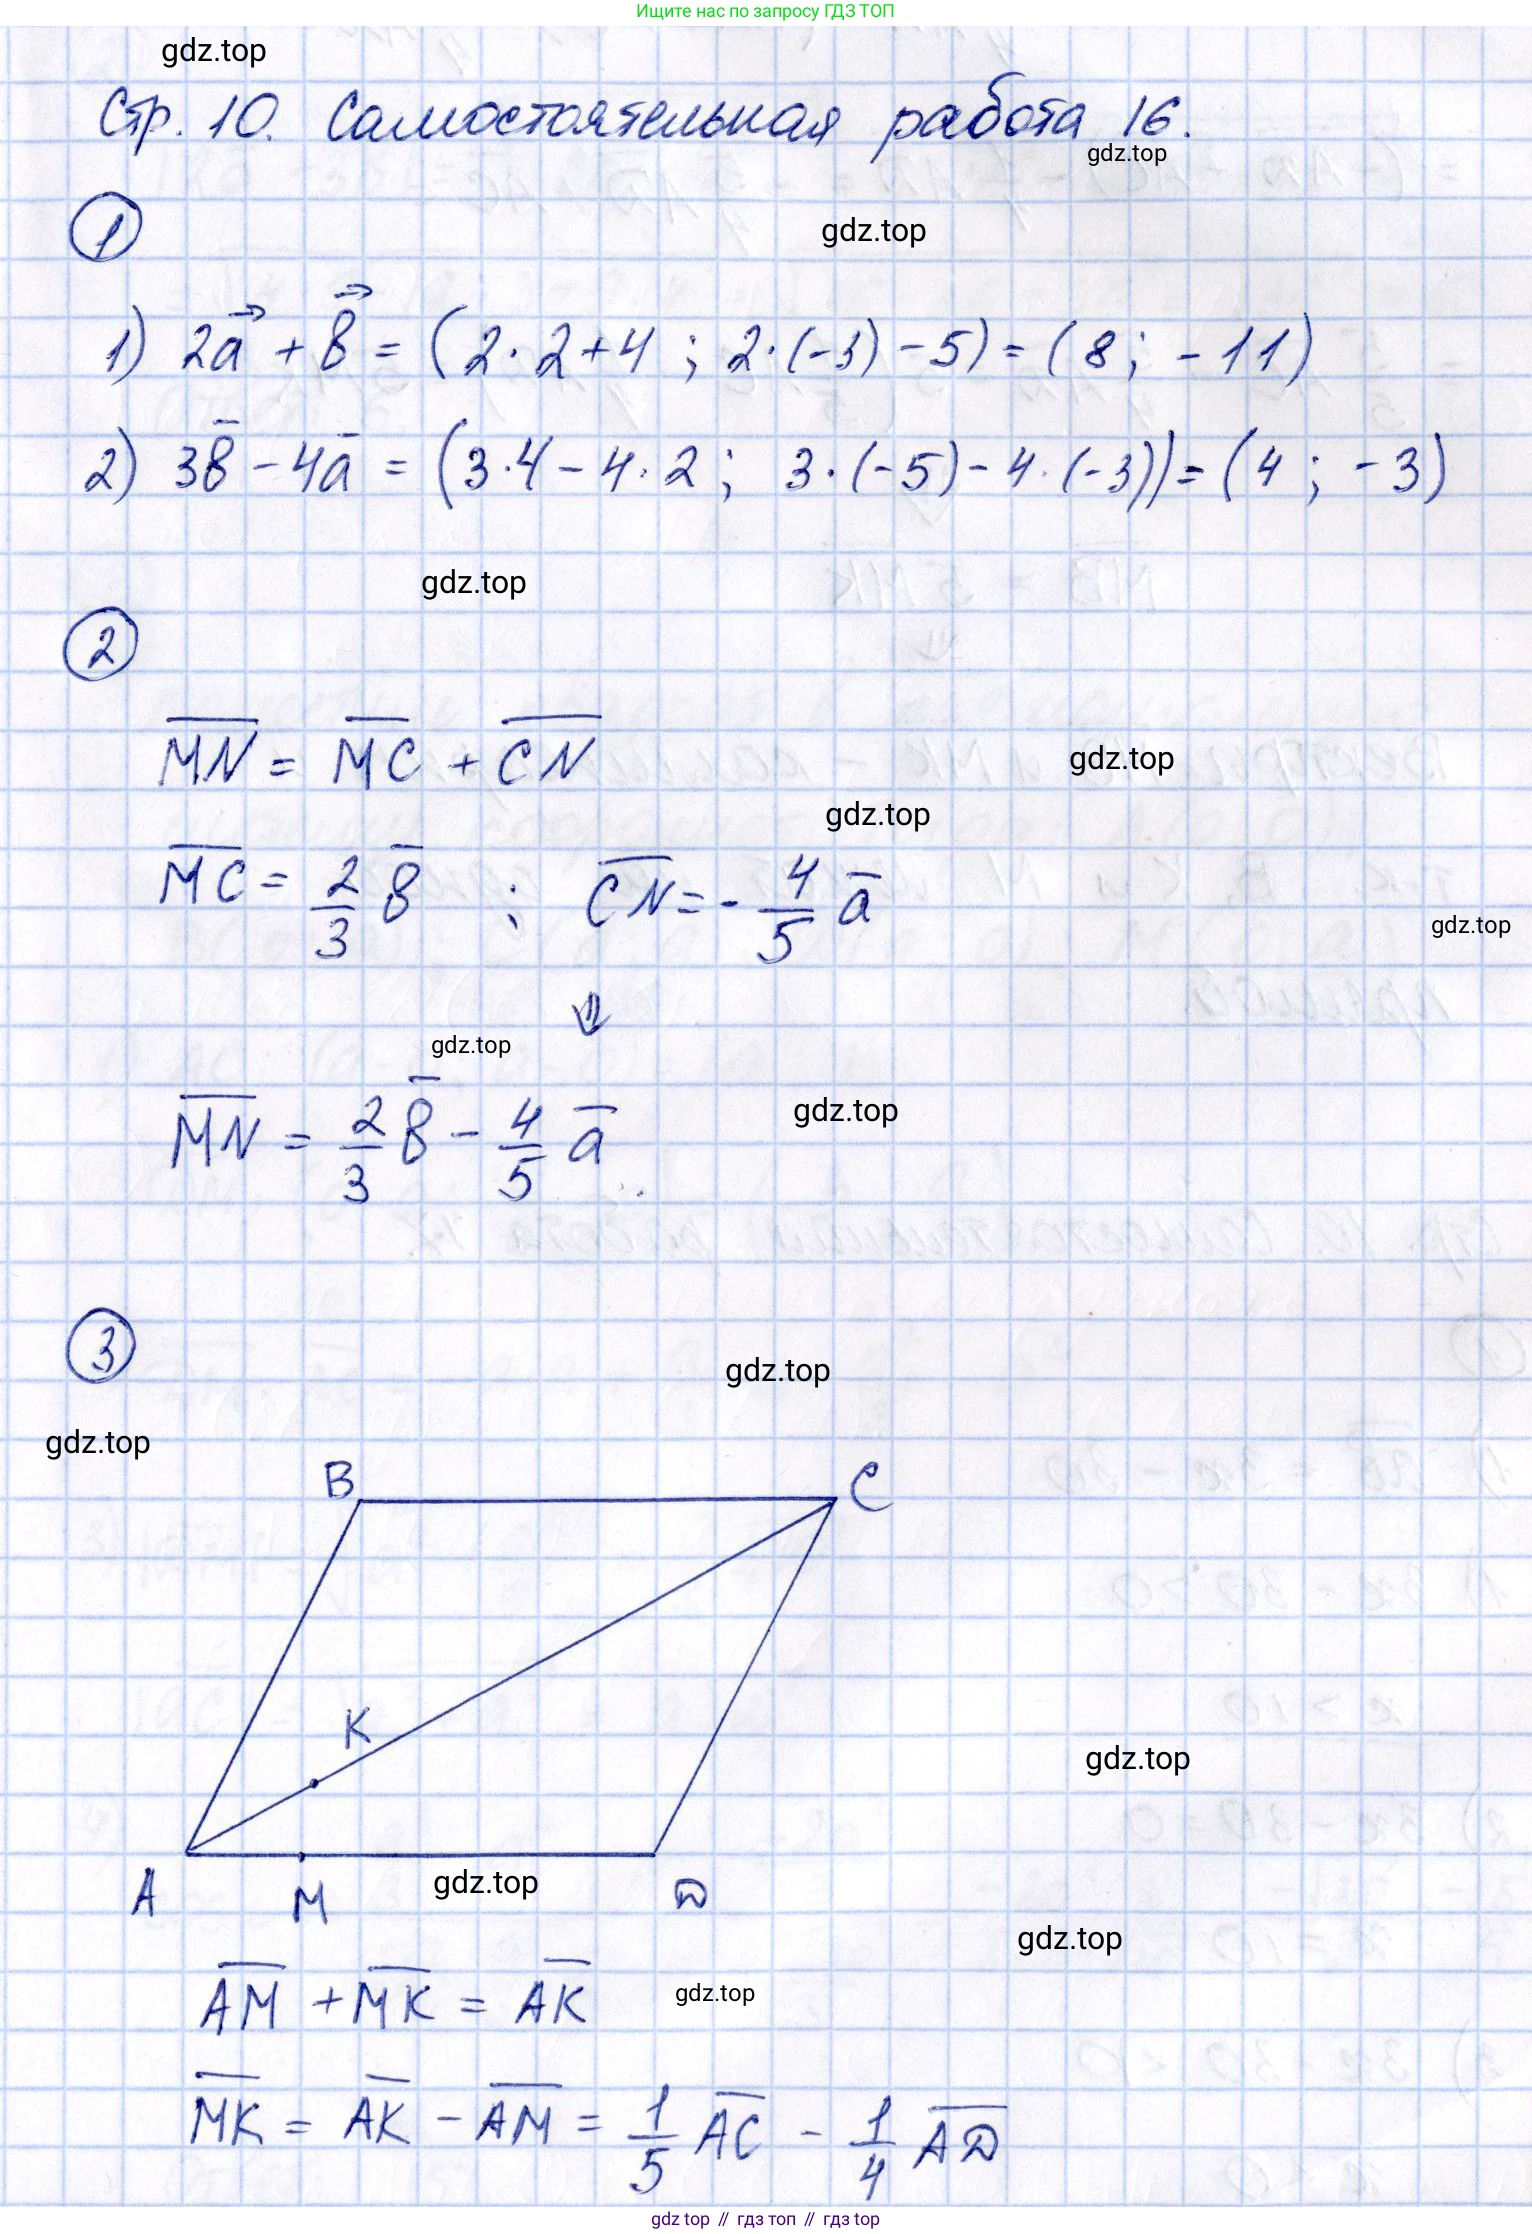 Ищите нас по запросу ГДЗ ТОП
gdz.top
Стр. 10. Самостоятельная работа 16.
gdz.top
1
gdz.top
1) 2a⃗ + b⃗ = (2·2+4 ; 2·(-3)-5) = (8; -11)
2) 3b̅ - 4a̅ = (3·4 - 4·2 ; 3·(-5) - 4·(-3)) = (4 ; -3)
gdz.top
2
M̅N̅ = M̅C̅ + C̅N̅
gdz.top
gdz.top
M̅C̅ = 2/3 b̅ ; C̅N̅ = - 4/5 a̅
gdz.top
⇓
gdz.top
M̅N̅ = 2/3 b̅ - 4/5 a̅.
gdz.top
3
gdz.top
gdz.top
B C
K
gdz.top
A M D
gdz.top
gdz.top
A̅M̅ + M̅K̅ = A̅K̅
gdz.top
M̅K̅ = A̅K̅ - A̅M̅ = 1/5 A̅C̅ - 1/4 A̅D̅
gdz top // гдз топ // gdz top